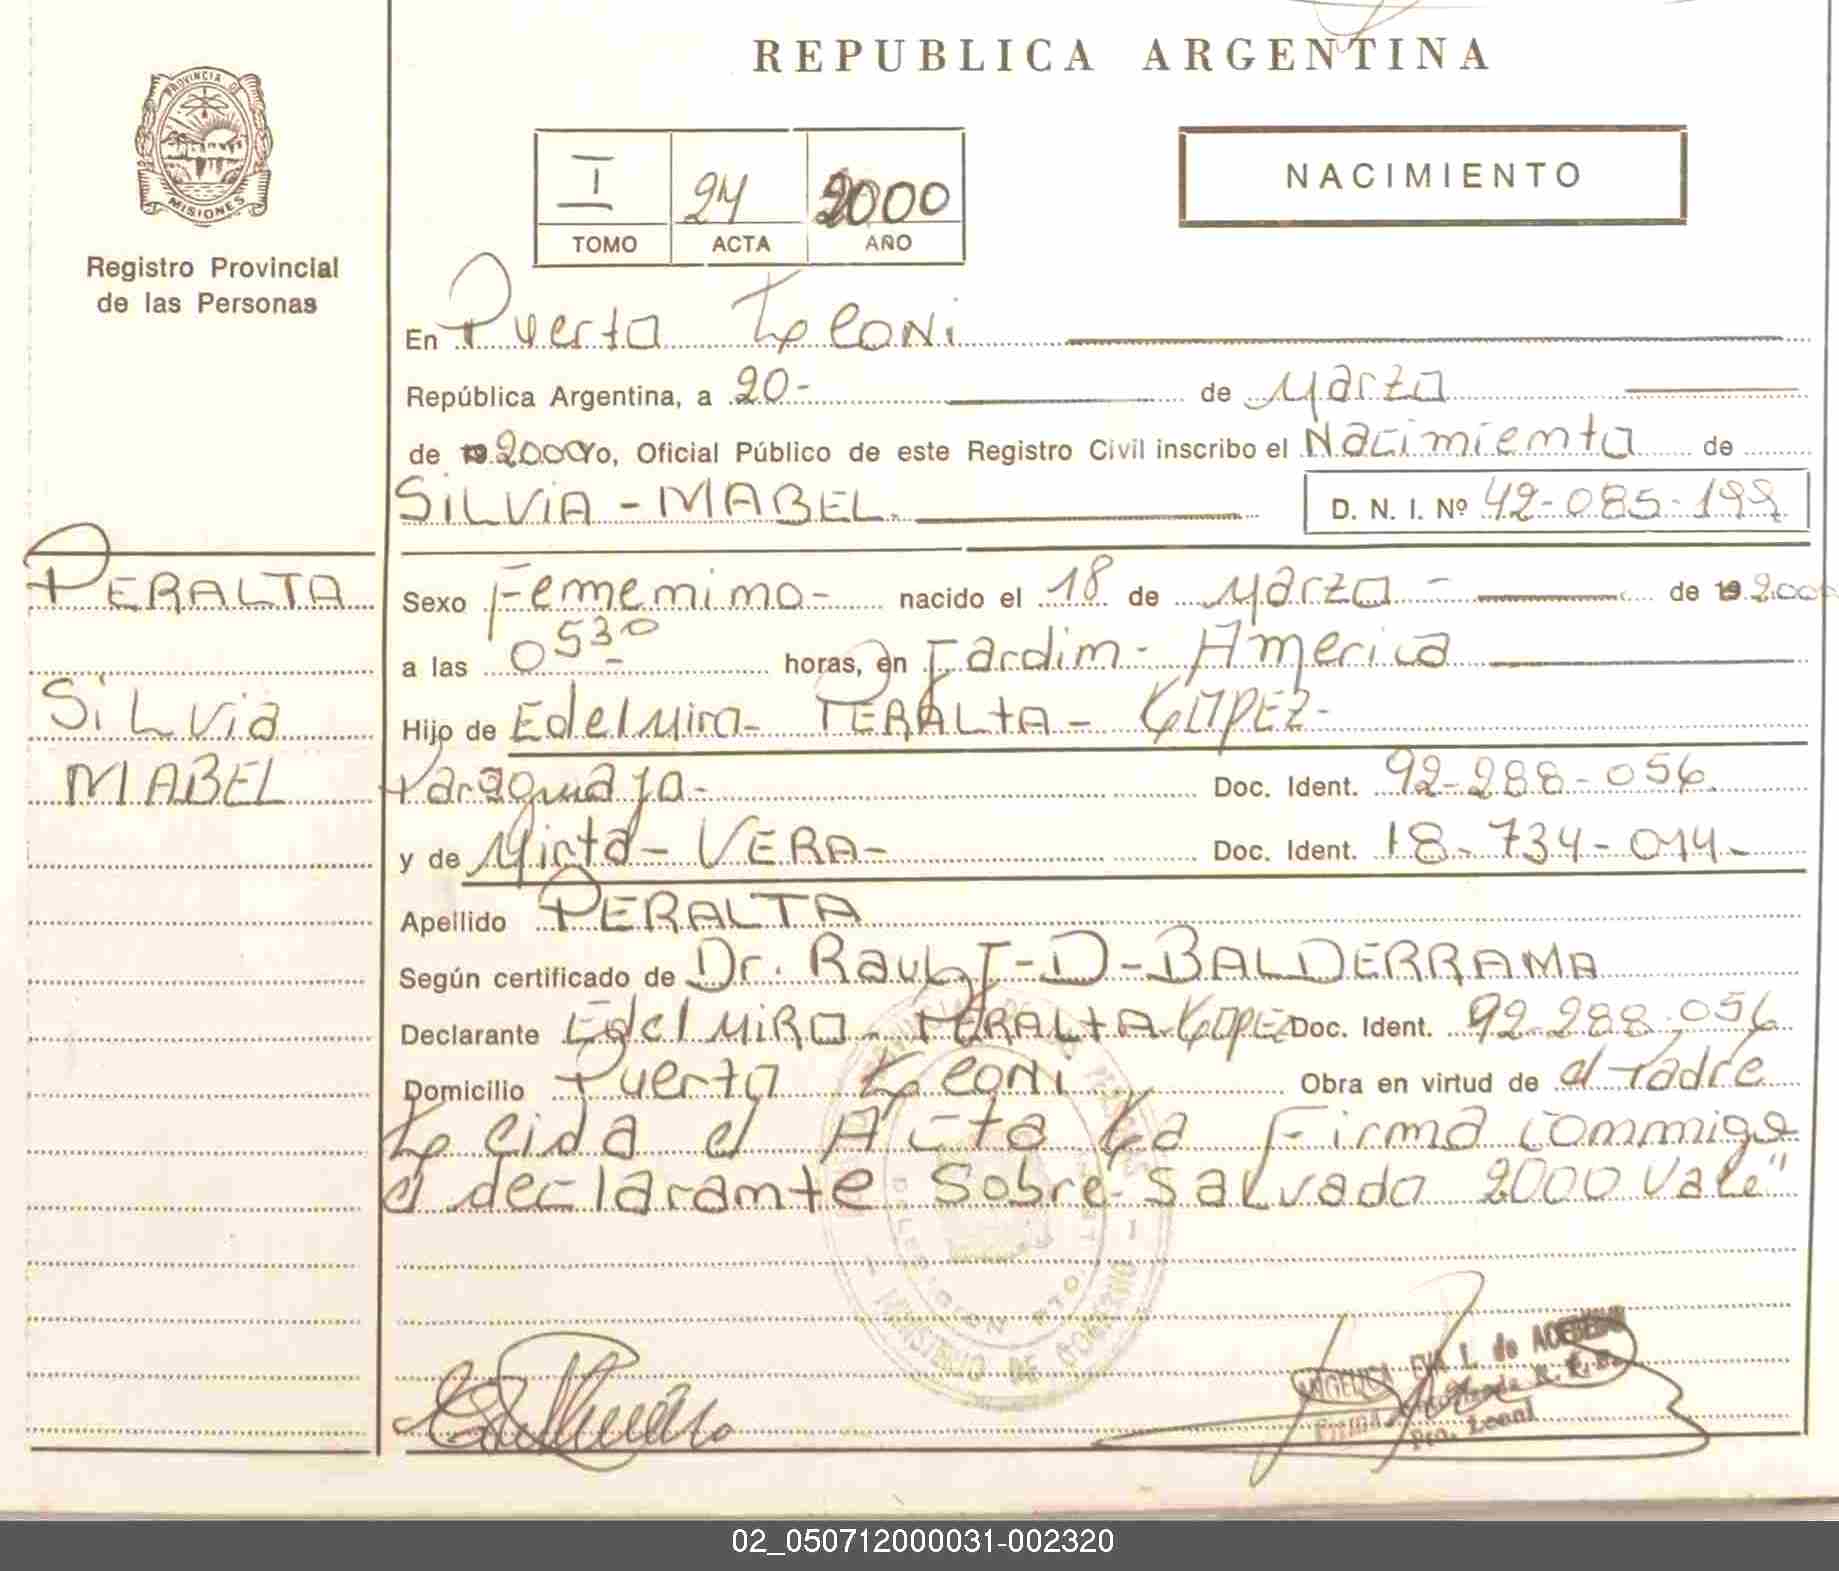 REPUBLICA ARGENTINA
PROVINCIA DE
MISIONES
Registro Provincial
de las Personas
I 24 2000
TOMO ACTA AÑO
NACIMIENTO
En Puerto Leoni
República Argentina, a 20- de Marzo
de 19 2000 Yo, Oficial Público de este Registro Civil inscribo el Nacimiento de
SILVIA - MABEL. D. N. I. Nº 42-085-199
PERALTA
SiLvia
MABEL
Sexo Femenino- nacido el 18 de Marzo - de 19 2000
a las 0530- horas, en Jardin- America
Hijo de Edelmiro- PERALTA- LOPEZ-
Paraguayo- Doc. Ident. 92-288-056.
y de Mirta- VERA- Doc. Ident. 18-734-014-
Apellido PERALTA
Según certificado de Dr. Raul J-D-BALDERRAMA
Declarante EdelMiRO- PERALTA-LOPEZ Doc. Ident. 92.288.056
Domicilio Puerto Leoni Obra en virtud de el Padre
Leida el Acta La Firma conmigo
el declarante Sobre-Salvado 2000 Vale"
MINISTERIO DE GOBIERNO
ANGELICA EVA L. de
Pto. Leoni
02_050712000031-002320